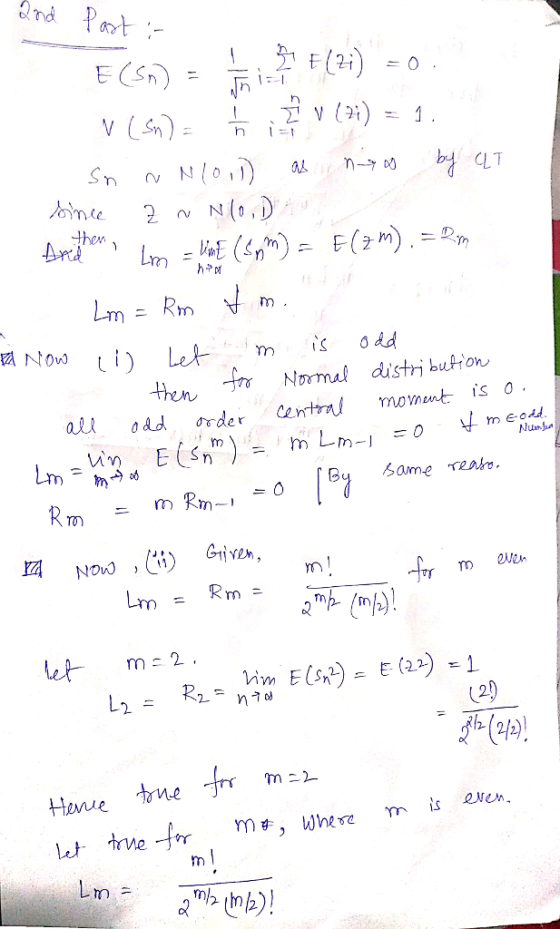 2nd Part :-
E(Sn) = 1/√n Σ_{i=1}^{n} E(Zi) = 0.
V(Sn) = 1/n Σ_{i=1}^{n} V(Zi) = 1.
Sn ~ N(0,1) as n→∞ by CLT
since Z ~ N(0,1)
then, Lm = lim_{n→∞} E(Sn^m) = E(Z^m). = Rm
Lm = Rm ∀ m.
Now (i) Let m is odd
then for Normal distribution
all odd order central moment is 0.
Lm = lim_{m→∞} E(Sn^m) = m Lm-1 = 0 ∀ m ∈ odd Number
Rm = m Rm-1 = 0 [By same reaso.
Now, (ii) Given,
Lm = Rm = m!/(2^{m/2} (m/2)!) for m even
let m = 2.
L2 = R2 = lim_{n→∞} E(Sn^2) = E(Z2) = 1
= (2!)/(2^{2/2} (2/2)!)
Hence true for m=2
let true for m, where m is even.
Lm = m!/(2^{m/2} (m/2)!)